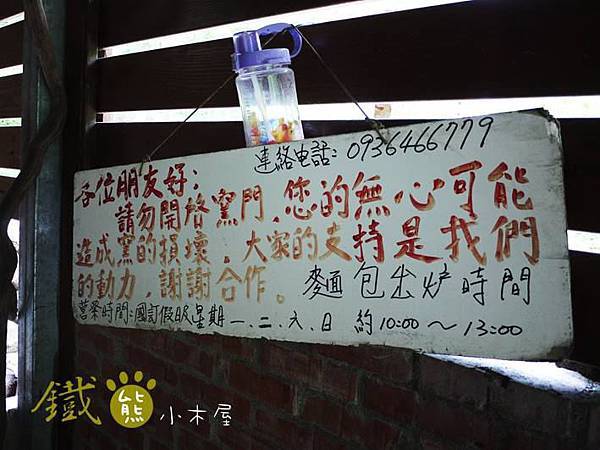 連絡电話: 0936466779
各位朋友好:
請勿開啓窯門.您的無心可能
造成窯的損壞.大家的支持是我們
的動力,謝謝合作。麵包出炉時間
營業時間:國訂假日及星期一.二.六.日 約10:00～13:00
鐵熊小木屋